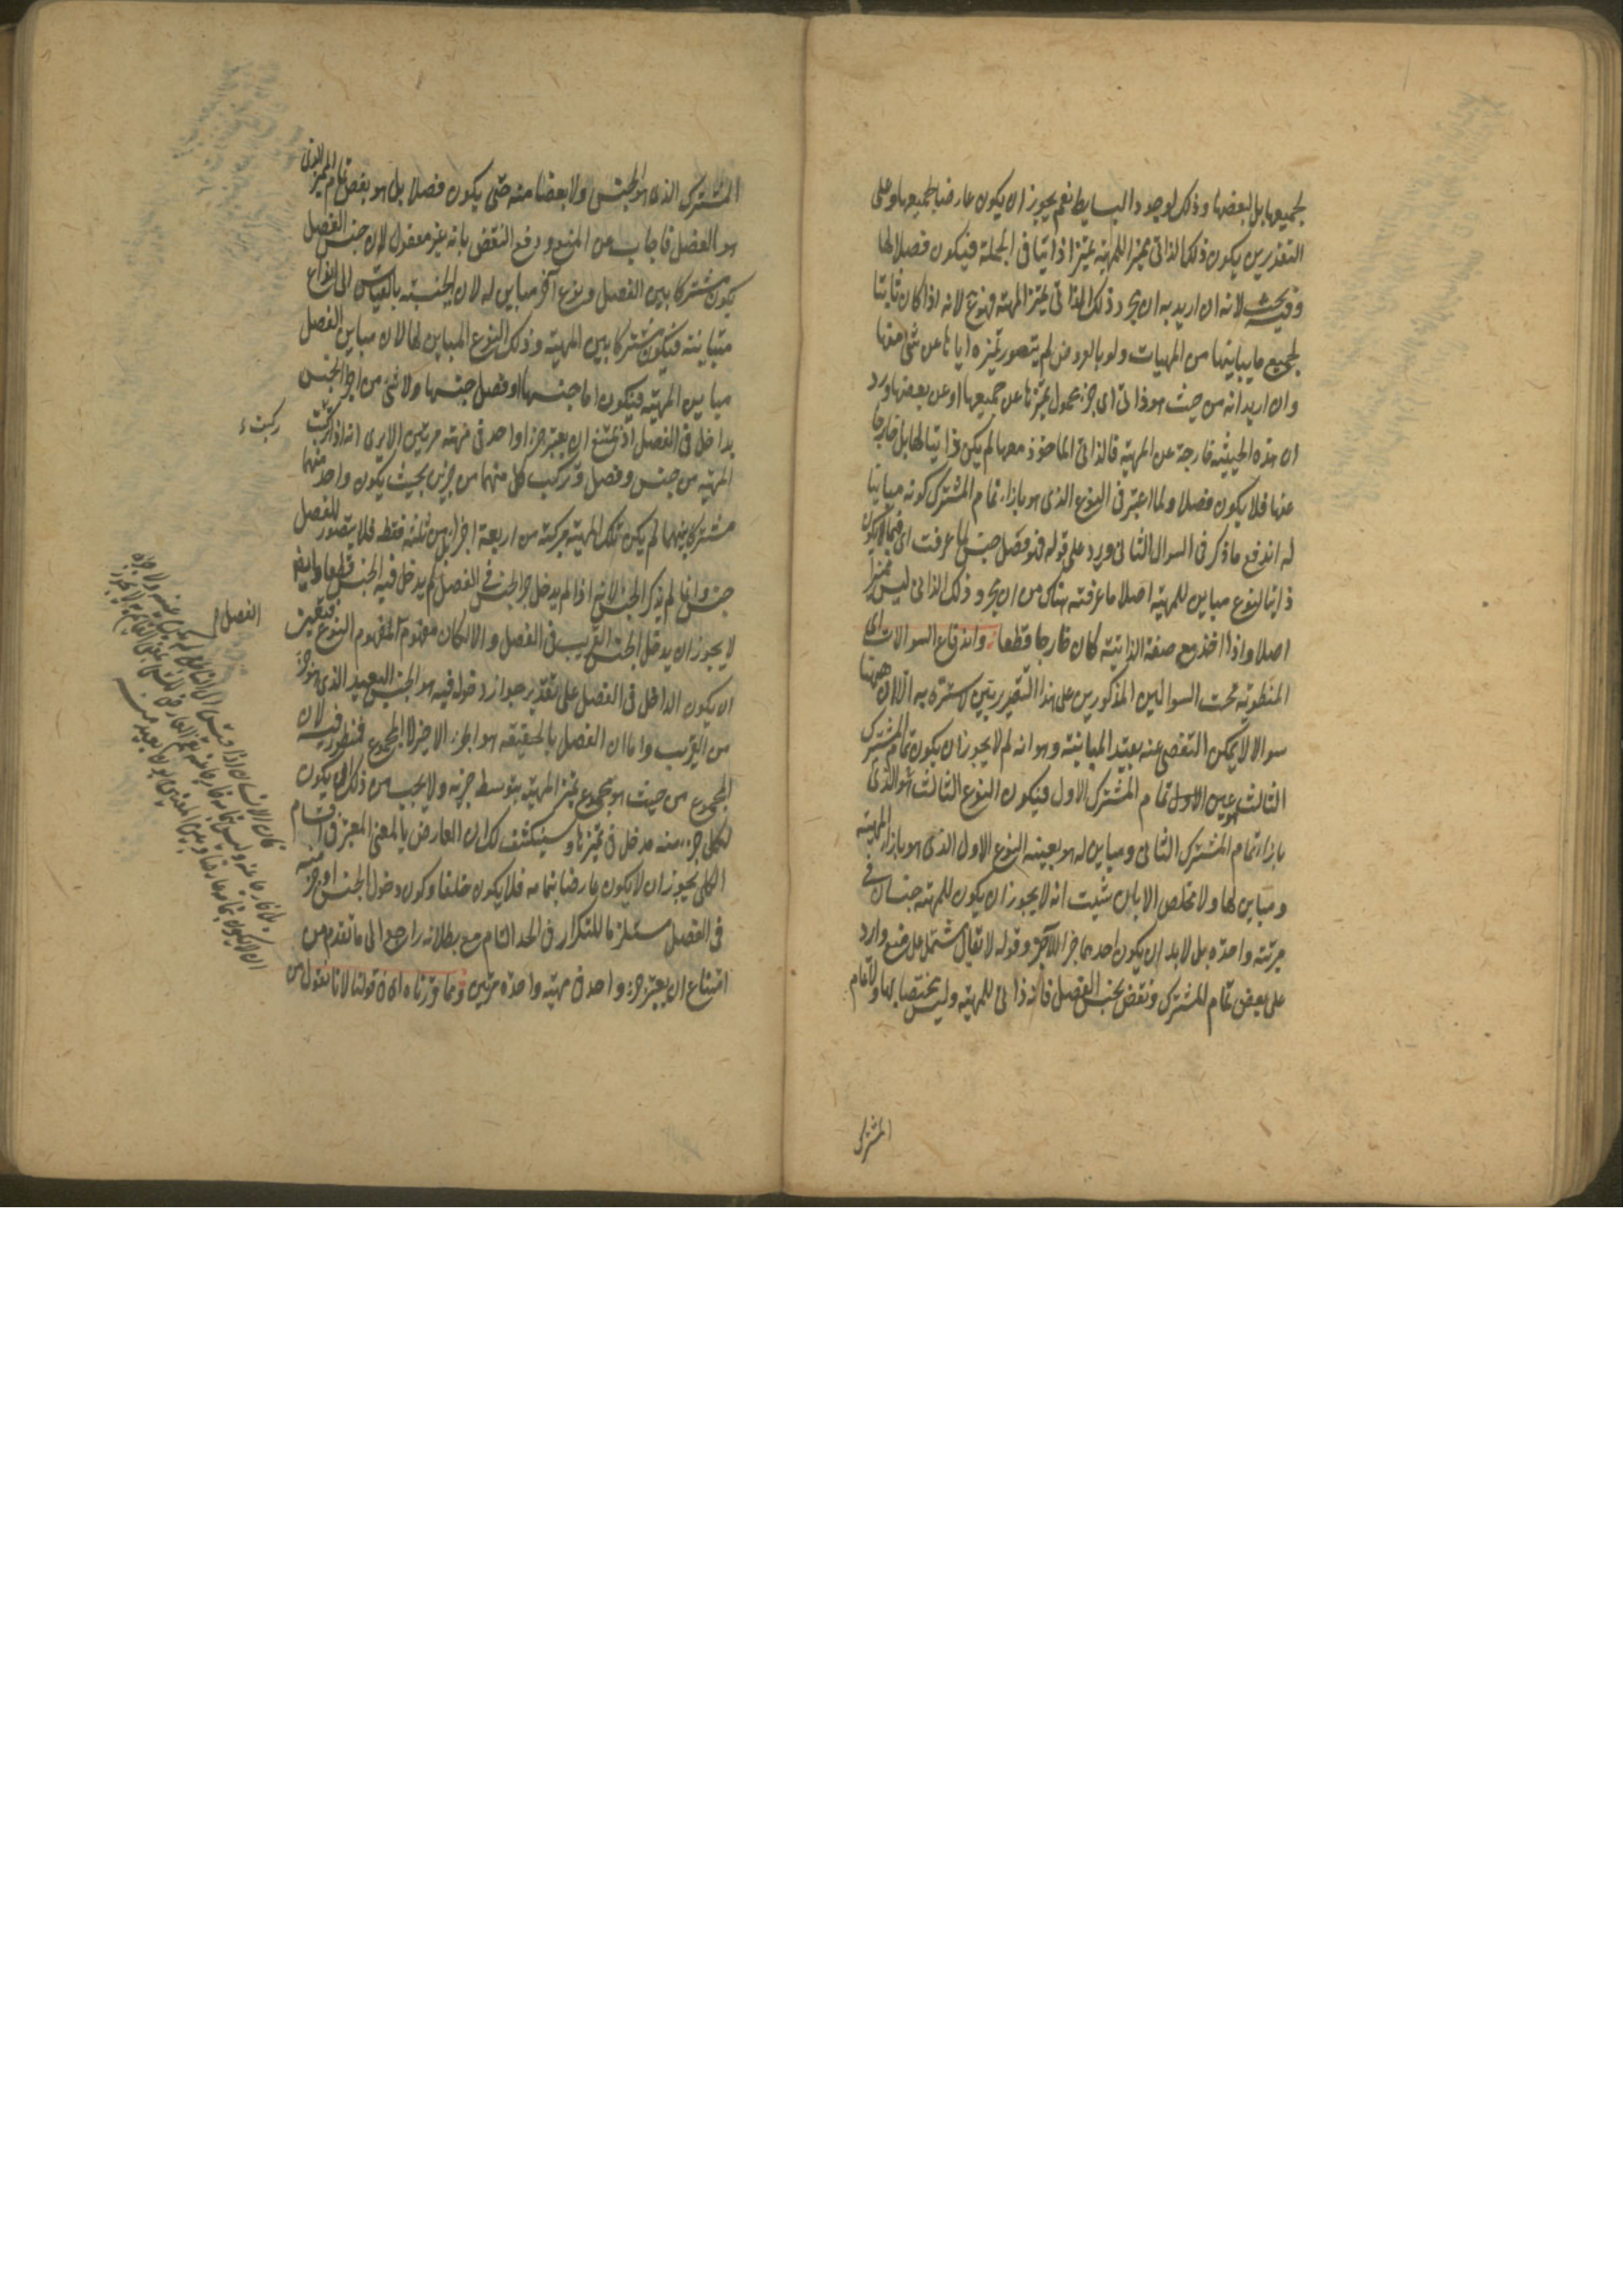 لجميعها بل لبعضها وذلك لوجود البسايط نعم يجوز ان يكون عارضا لجميعها وعلى
التقديرين يكون ذلك الذاتى مميزا للمهية تميزا ذاتيا فى الجملة فيكون فصلا لها
وفيه بحث لانه ان اريد به ان مجرد ذلك الذاتى يميز المهية فممنوع لانه اذا كان ثابتا
لجميع ما يباينها من المهيات ولو بالعروض لم يتصور تميزه اياها عن شى منها
وان اريد انه من حيث هو ذاتى اى جزء محمول يميزها عن جميعها او عن بعضها ورد
ان هذه الحيثية خارجة عن المهية فالذاتى الماخوذ معها لم يكن ذاتيا لها بل خارجا
عنها فلا يكون فصلا ولما اعتبر فى النوع الذى هو بازاء تمام المشترك كونه مباينا
له اندفع ما ذكر فى السوال الثانى ويرد على قوله فهو فصل جنس لما عرفت اى فيما لا يكون
ذاتيا لنوع مباين للمهية اصلا ما عرفته هناك من ان مجرد ذلك الذاتى ليس مميزا
اصلا واذا اخذ مع صفة الذاتية كان خارجا قطعا واندفاع السوالات اى
المنطوية تحت السوالين المذكورين على هذا التقدير يتبين لا سترة به الا ان ههنا
سوالا لا يمكن التفصى عنه بقيد المباينة وهو انه لم لا يجوز ان يكون تمام المشترك
الثالث هو عين الاول تمام المشترك الاول فيكون النوع الثالث هو الذى
بازاء تمام المشترك الثانى ومباين له هو بعينه النوع الاول الذى هو بازاء المهية
ومباين لها ولا مخلص الا بان يثبت انه لا يجوز ان يكون للمهية جنسان فى
مرتبة واحدة بل لا بد ان يكون احدهما جزا للاخر وقوله لا يقال يشتمل على منع وارد
على بعض تمام المشترك ونقض بجنس الفصل فانه ذاتى للمهية وليس مختصا بها ولا تمام
المشترك
المشترك الذى هو الجنس ولا بعضا منه حتى يكون فصلا بل هو بعض تمام المميز الذى
هو الفصل فاجاب عن المنع ودفع النقض بانه غير معقول لان جنس الفصل
يكون مشتركا بين الفصل ونوع اخر مباين له لان الجنسية بالقياس الى انواع
متباينة فيكون مشتركا بين المهية وذلك النوع المباين لها لان مباين الفصل
مباين المهية فيكون اما جنسها او فصل جنسها ولا شى من اجزا الجنس
بداخل فى الفصل اذ يمتنع ان يعتبر جزا واحد فى مهية مرتين الا يرى انه اذا تركبت
المهية من جنس وفصل وتركيب كل منهما من جزئين بحيث يكون واحد منهما
مشتركا بينهما لم يكن تلك المهية مركبة من اربعة اجزاء بل من ثلثة فقط فلا يتصور للفصل
جنس وانما لم يذكر الجنس لانه اذا لم يدخل جزء الجنس فى الفصل لم يدخل فيه الجنس قطعا وايضا
لا يجوز ان يدخل الجنس القريب فى الفصل والا لكان مفهومه مفهوم النوع فتعين
ان يكون الداخل فى الفصل على تقدير جواز دخوله فيه هو الجنس البعيد الذى هو جزء
من القريب واما ان الفصل بالحقيقة هو الجزء الاخير لا المجموع فمنظور فيه لان
المجموع من حيث هو مجموع يميز المهية بتوسط جزئه ولا يجب من ذلك ان يكون
لكل جزء منه مدخل فى تميزها وسينكشف لك ان العارض بالمعنى المعتبر فى اقسام
الكلى يجوز ان لا يكون عارضا بتمامه فلا يكون خلفا وكون دخول الجنس او جزء منه
فى الفصل مستلزما للتكرار فى الحد التام مع بطلانه راجع الى ما تقدم من
امتناع ان يعتبر جزء واحد فى مهية واحدة مرتين وما قررناه اى فى قولنا لانا نقول من
الفصل